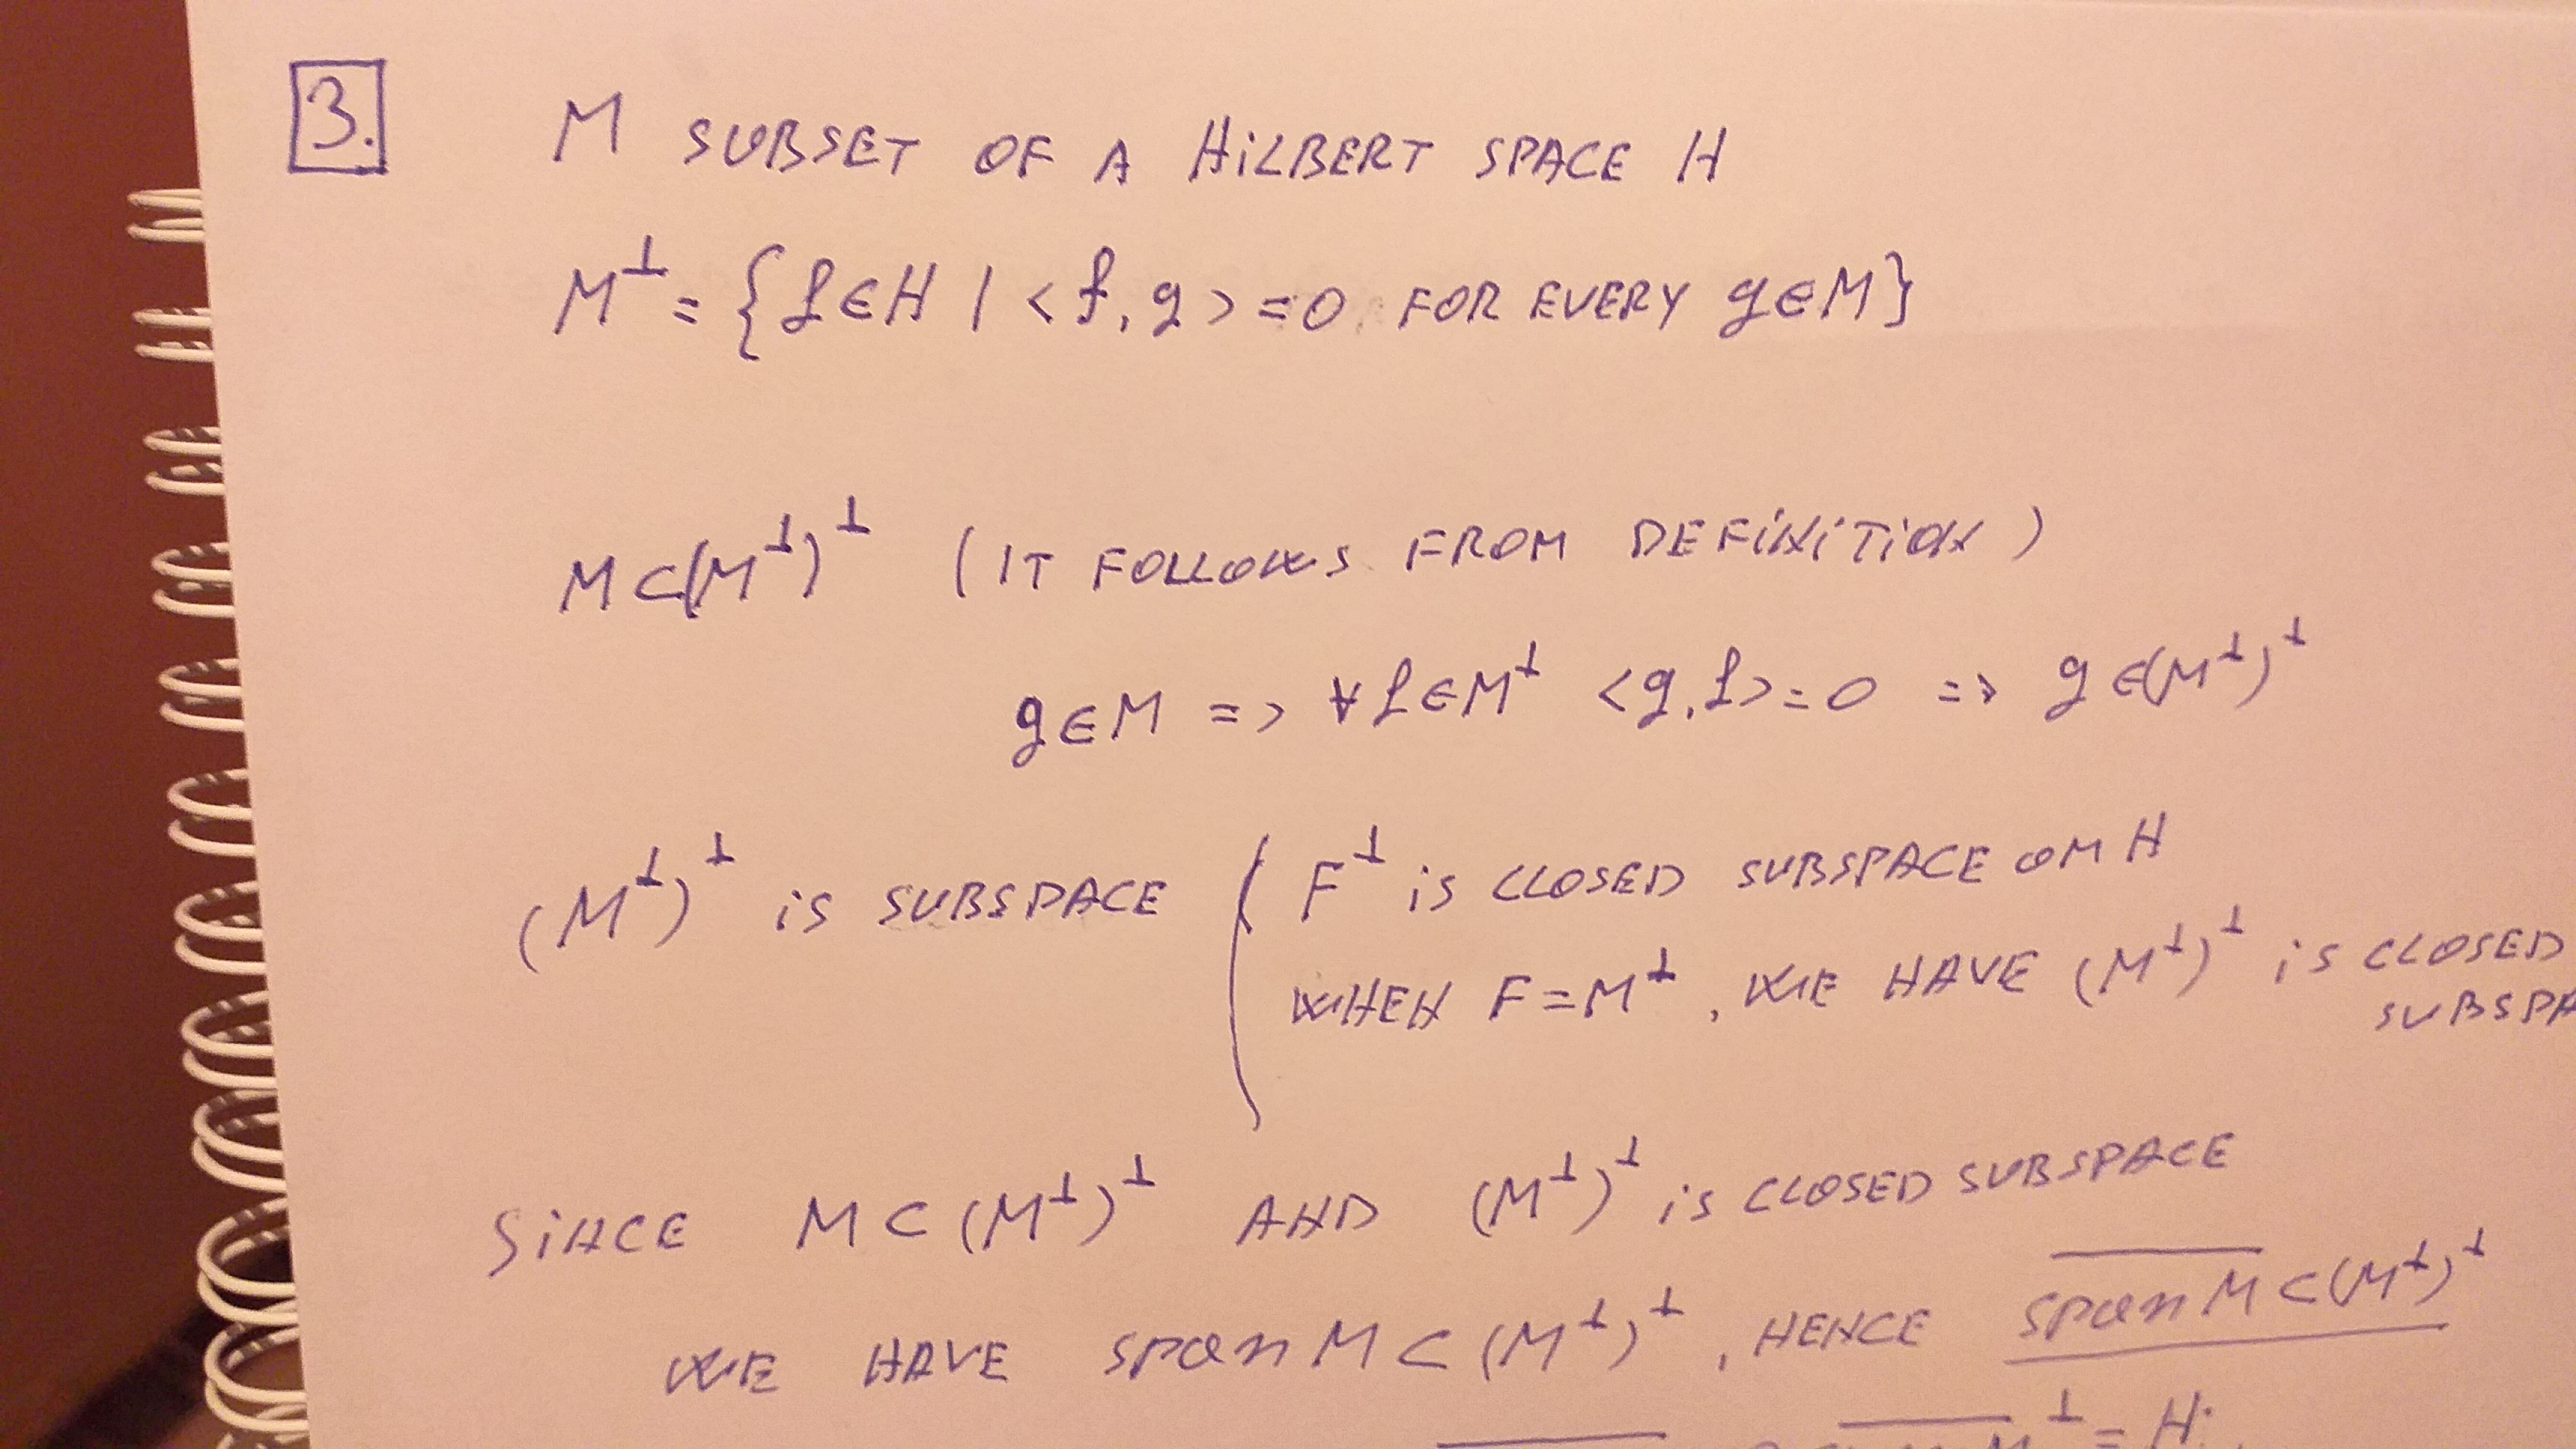 3. M SUBSET OF A HILBERT SPACE H
M⊥ = {f∈H | <f,g> = 0 FOR EVERY g∈M}
M⊂(M⊥)⊥ (IT FOLLOWS FROM DEFINITION)
g∈M => ∀f∈M⊥ <g,f>=0 => g∈(M⊥)⊥
(M⊥)⊥ is SUBSPACE ( F⊥ is CLOSED SUBSPACE OM H
WHEN F=M⊥, WE HAVE (M⊥)⊥ is CLOSED
SUBSPA
SINCE M⊂(M⊥)⊥ AND (M⊥)⊥ is CLOSED SUBSPACE
WE HAVE span M⊂(M⊥)⊥, HENCE s̅p̅a̅n̅ ̅M̅⊂(M⊥)⊥
⊥ = H: